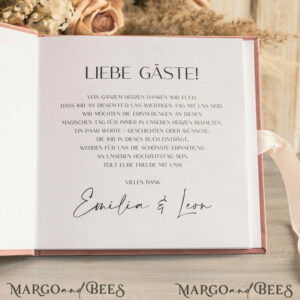 LIEBE GÄSTE!
VON GANZEM HERZEN DANKEN WIR EUCH,
DASS IHR AN DIESEM FÜR UNS WICHTIGEN TAG MIT UNS SEID.
WIR MÖCHTEN DIE ERINNERUNGEN AN DIESEN
MAGISCHEN TAG FÜR IMMER IN UNSEREN HERZEN BEHALTEN.
EIN PAAR WORTE - GESCHICHTEN ODER WÜNSCHE,
DIE IHR IN DIESES BUCH EINTRAGT,
WERDEN FÜR UNS DIE SCHÖNSTE ERINNERUNG
AN UNSEREN HOCHZEITSTAG SEIN.
TEILT EURE FREUDE MIT UNS!
VIELEN DANK
Emilia & Leon
MARGOandBEES MARGOandBEES